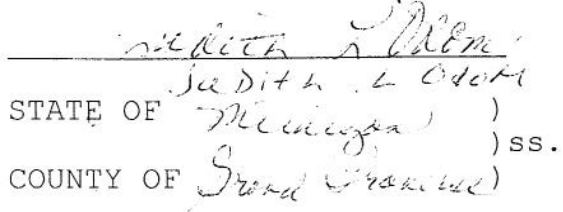 Judith L Odom
Judith L Odom
STATE OF Michigan )
)ss.
COUNTY OF Grand Traverse)